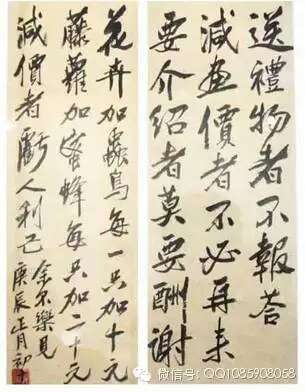 送禮物者不報答
減畫價者不必再来
要介紹者莫要酬谢
花卉加蟲鳥每一只加十元
藤蘿加蜜蜂每只加二十元
減價者虧人利己余不樂見
庚辰正月初十
微信号: QQ1085908058